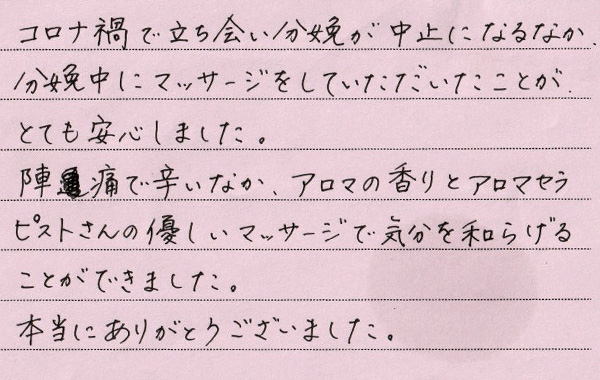 コロナ禍で立ち会い分娩が中止になるなか、
分娩中にマッサージをしていただいたことが、
とても安心しました。
陣痛で辛いなか、アロマの香りとアロマセラ
ピストさんの優しいマッサージで気分を和らげる
ことができました。
本当にありがとうございました。